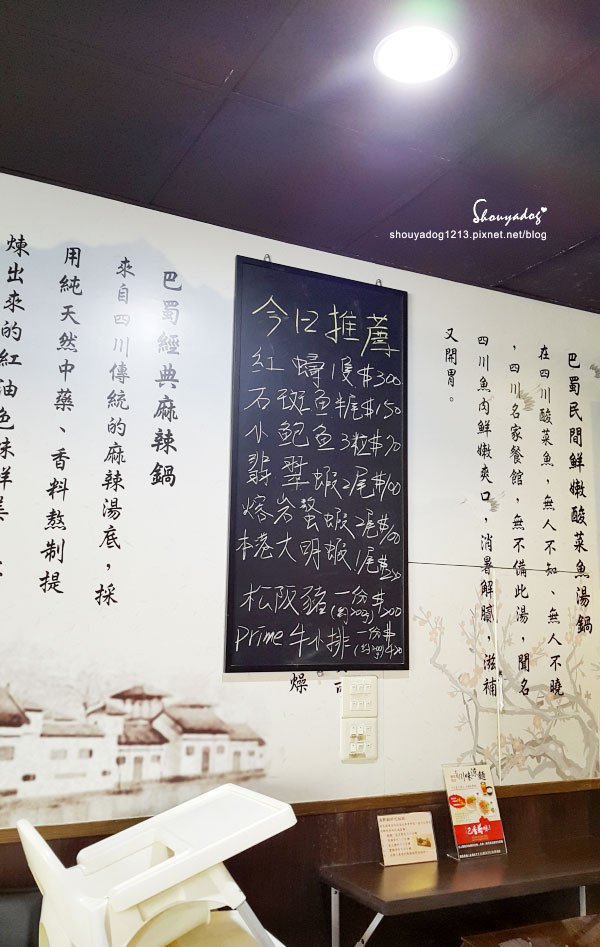 Shouyadog
shouyadog1213.pixnet.net/blog
今日推薦
紅蟳1隻$300
石斑魚半尾$150
小鮑魚3粒$70
翡翠蝦2尾$100
熔岩螯蝦2尾$100
本港大明蝦1尾
松阪豬一份$200
Prime牛小排一份$
巴蜀民間鮮嫩酸菜魚湯鍋
在四川酸菜魚，無人不知、無人不曉
，四川名家餐館，無不備此湯，聞名
四川魚肉鮮嫩爽口，消暑解膩，滋補
又開胃。
巴蜀經典麻辣鍋
來自四川傳統的麻辣湯底，採
用純天然中藥、香料熬制提
煉出來的紅油色味鮮美
燥